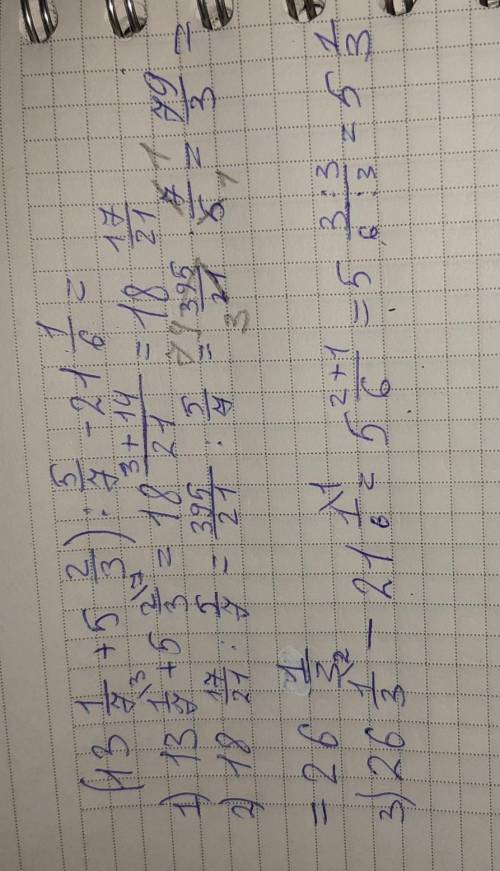 (13 1/7 + 5 2/3) : 5/7 - 21 1/6 =
1) 13 1/7\3 + 5 2/3\7 = 18 3+14/21 = 18 17/21
2) 18 17/21 : 5/7 = 395/21 : 5/7 = 395/21 · 7/5 = 79/3 =
79 3 1 1
= 26 1/3
3) 26 1/3\2 - 21 1/6\1 = 5 2+1/6 = 5 3:3/6:3 = 5 1/3